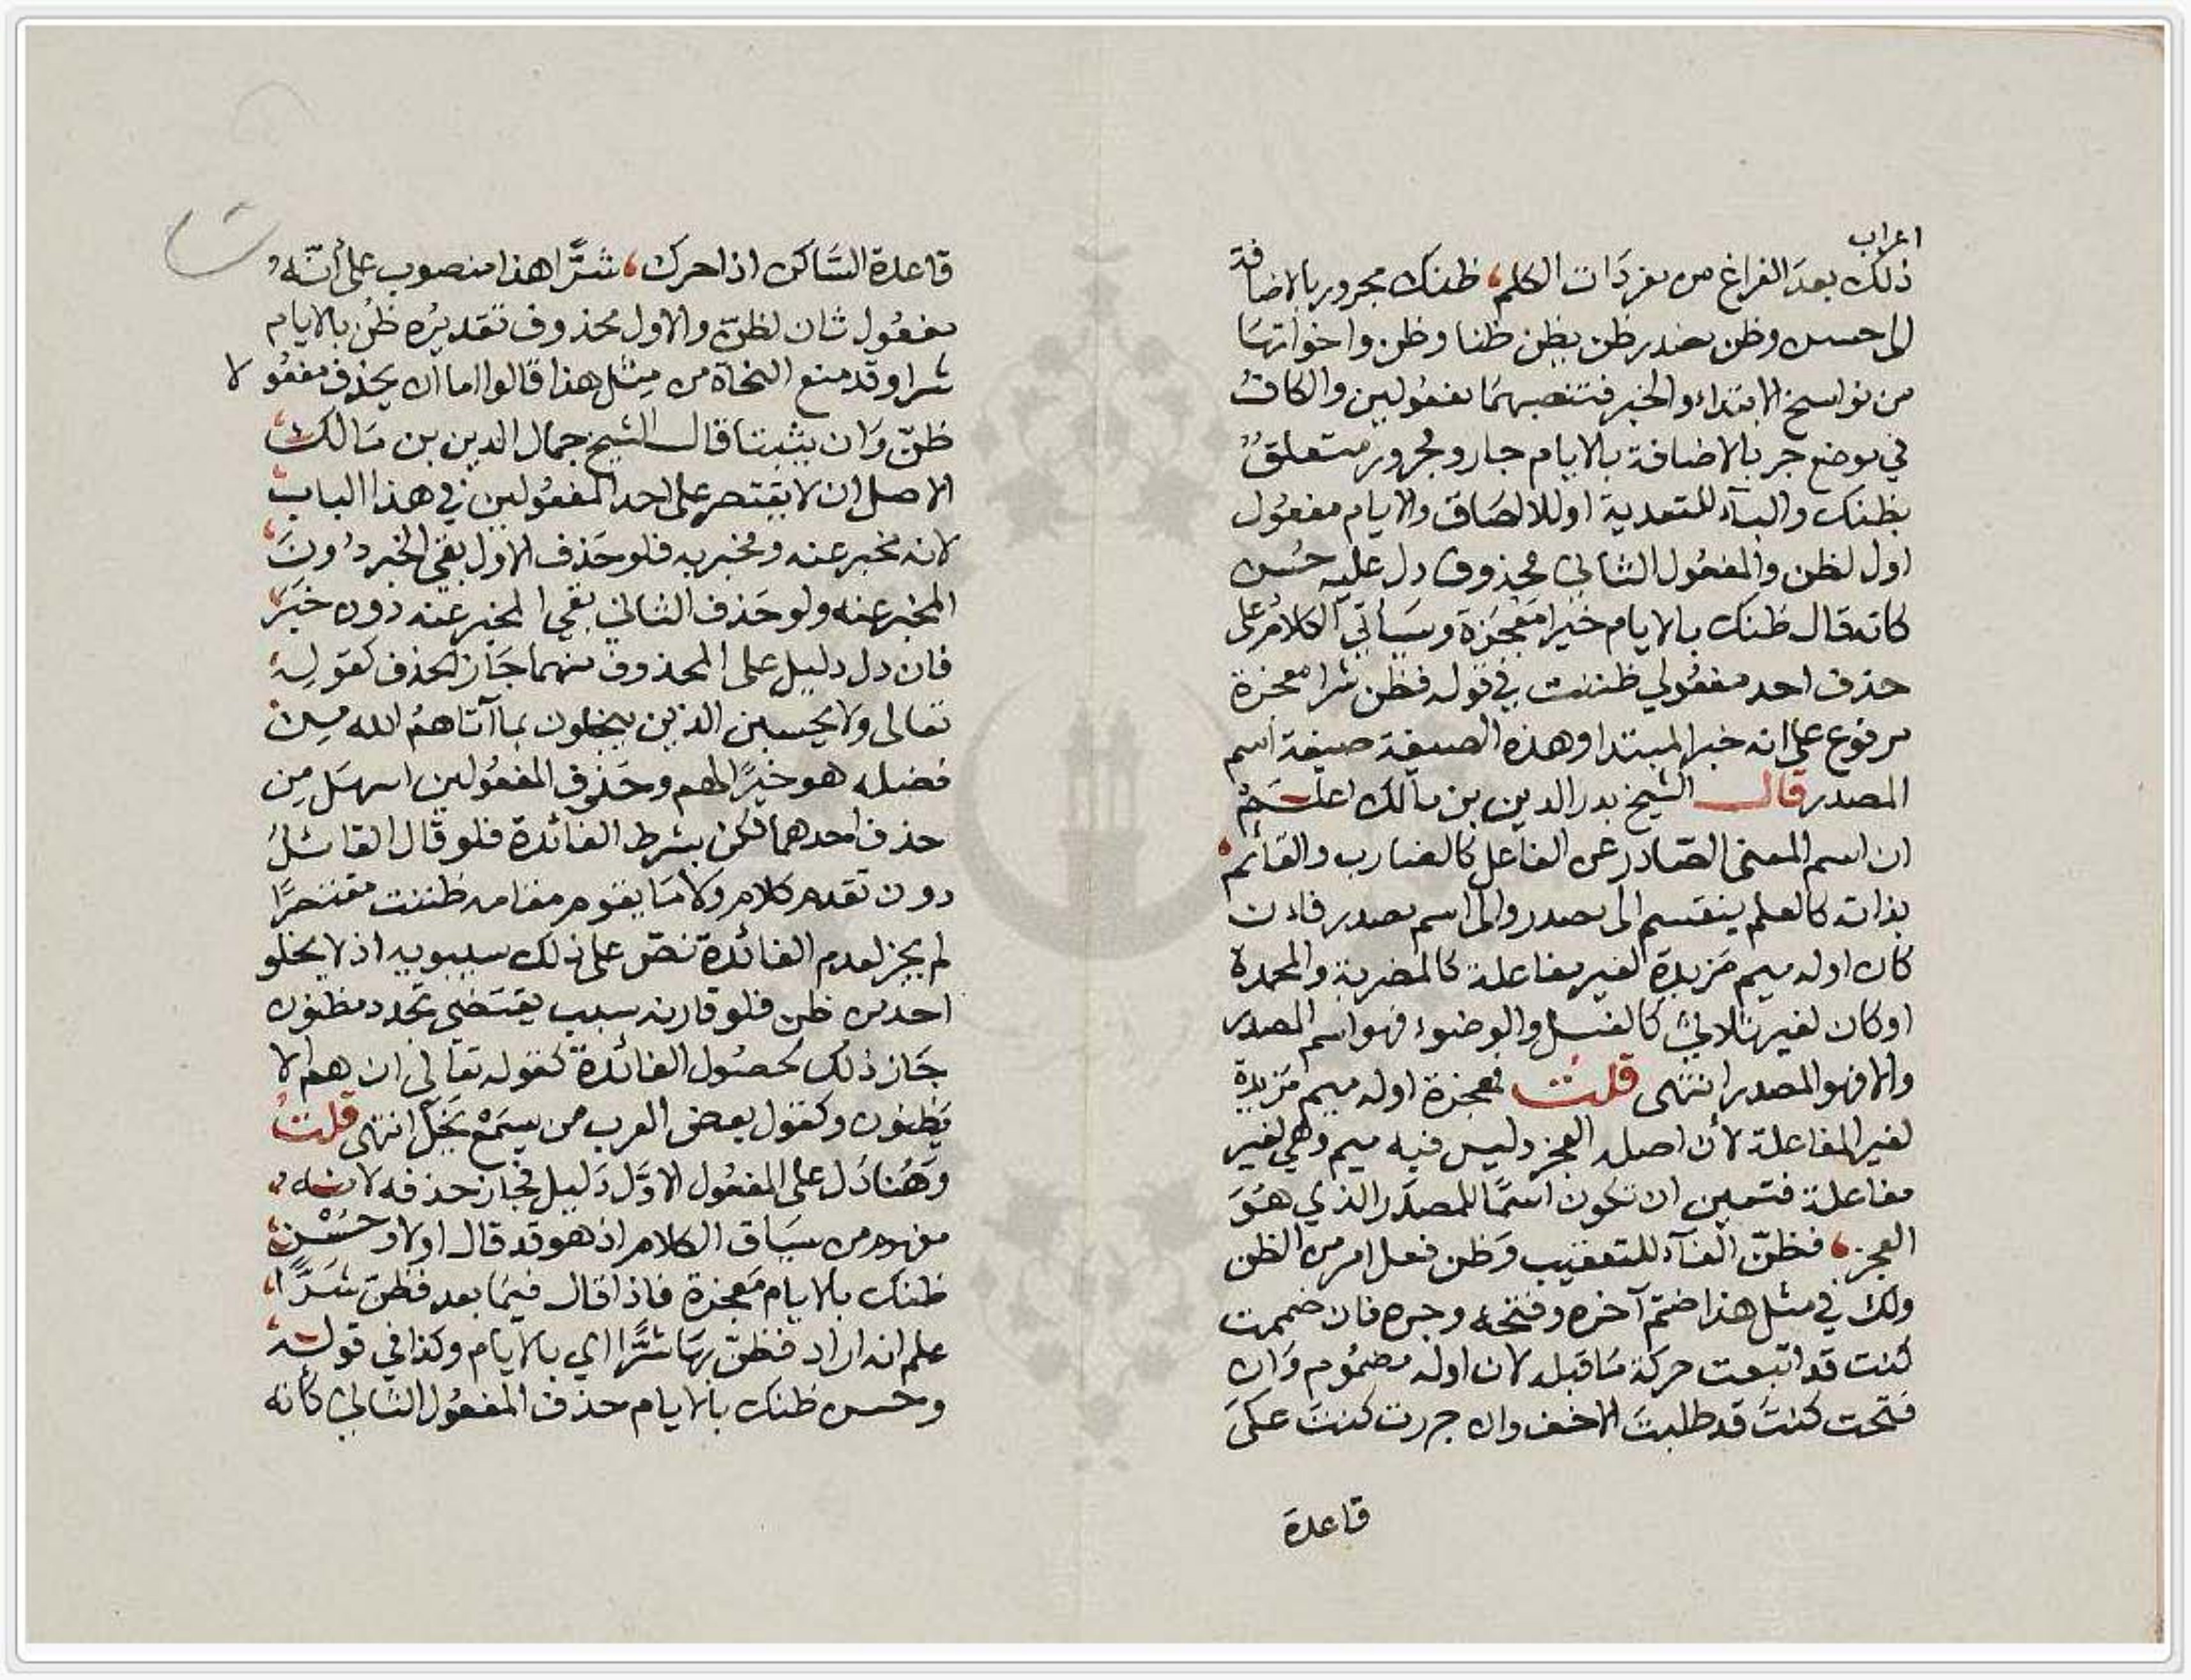 اعراب
ذلك بعد الفراغ من مفردات الكلم، ظنك مجرور بالاضافة
الى حسن وظن مصدر ظن يظن ظنا وظن واخواتها
من نواسخ الابتداء والخبر فتنصبهما مفعولين والكافُ
في موضع جر بالاضافة بالايام جار ومجرور متعلقٌ
بظنك والباء للتعدية او للالصاق والايام مفعول
اول لظن والمفعول الثاني محذوف دل عليه حُسن
كانه قال ظنك بالايام خيرا مَعجَزَة وسيأتي الكلام على
حذف احد مفعولي ظننت في قوله فظن شرا معجزة
مرفوع على انه خبر المبتدا وهذه الصيغة صيغة اسم
المصدر قال الشيخ بدر الدين بن مالك اعلَم
ان اسم المعنى الصادر عن الفاعل كالضارب والقائم
بذاته كالعلم ينقسم الى مصدر والى اسم مصدر فان
كان اوله ميم مَزيدة لغير مفاعلة كالمضربة والمحمدة
او كان لغير ثلاثي كالغسل والوضوء فهو اسم المصدر
والا فهو المصدر انتهى قلتُ فمعجزة اوله ميم مَزيدة
لغير المفاعلة لأن اصله العجز وليس فيه ميم وهي لغير
مفاعلة فتعين ان تكون اسمًا للمصدر الذي هُوَ
العجز، فظنّ الفاء للتعقيب وَظن فعل امر من الظن
ولك في مثل هذا ضمّ آخره وفتحه وجره فان ضممت
كنت قد اتبعت حركة مَا قبله لان اوله مضمُوم وَان
فتحت كنتَ قد طلبتَ الاخف وان جررت كنتَ عَلَى
قاعدة
قاعدة السَّاكن اذا حرك، شرًّا هذا منصوب على أنّه
مفعُول ثان لظنّ والاول محذوف تقديرُه ظُن بالايام
شرا وقد منع النحاة من مِثْل هذا قالوا اما ان يحذف مفعُولا
ظنّ وَان يثبتا قال الشيخ جمال الدين بن مَالك
الاصل ان لا يقتصر على احد المفعُولين في هذا الباب
لانه مخبر عنه ومخبر به فلو حَذف الاول بقي الخبر دُونَ
المخبر عنه ولو حَذف الثاني بقي المخبر عنه دون خَبَر
فان دل دليل على المحذوف منهما جَاز الحذف كقوله
تعالى ولا يحسبن الذين يبخلون بما آتاهمُ الله مِن
فضله هو خيرًا لهم وحَذف المفعُولين اسهَل مِن
حذف احدهما لكن بشرط الفائدة فلو قال القائلُ
دون تقدم كلام ولا مَا يقوم مقامه ظننت مقتصرًا
لم يجز لعدم الفائدة نصّ على ذلك سيبويه اذ لا يخلو
احد من ظن فلو قارنه سبب يقتضي تجدد مظنون
جَاز ذلك لحصُول الفائدة كقوله تعالى ان هم الا
يَظنون وكقول بعض العرب من يسمَعْ يَخَلْ انتهى قلتُ
وَهُنا دَل على المفعُول الاوّل دَليل فجاز حذفه لانه
مفهوم من سيَاق الكلام اذ هو قد قال اولا وحُسْن
ظنك بالايام مَعجزة فاذا قال فيمَا بعد فظنّ شَرًّا،
علم انه اراد فظنّ بهَا شرًّا اي بالايام وكذا في قوله
وحسن ظنك بالايام حذف المفعُول الثاني كأنه